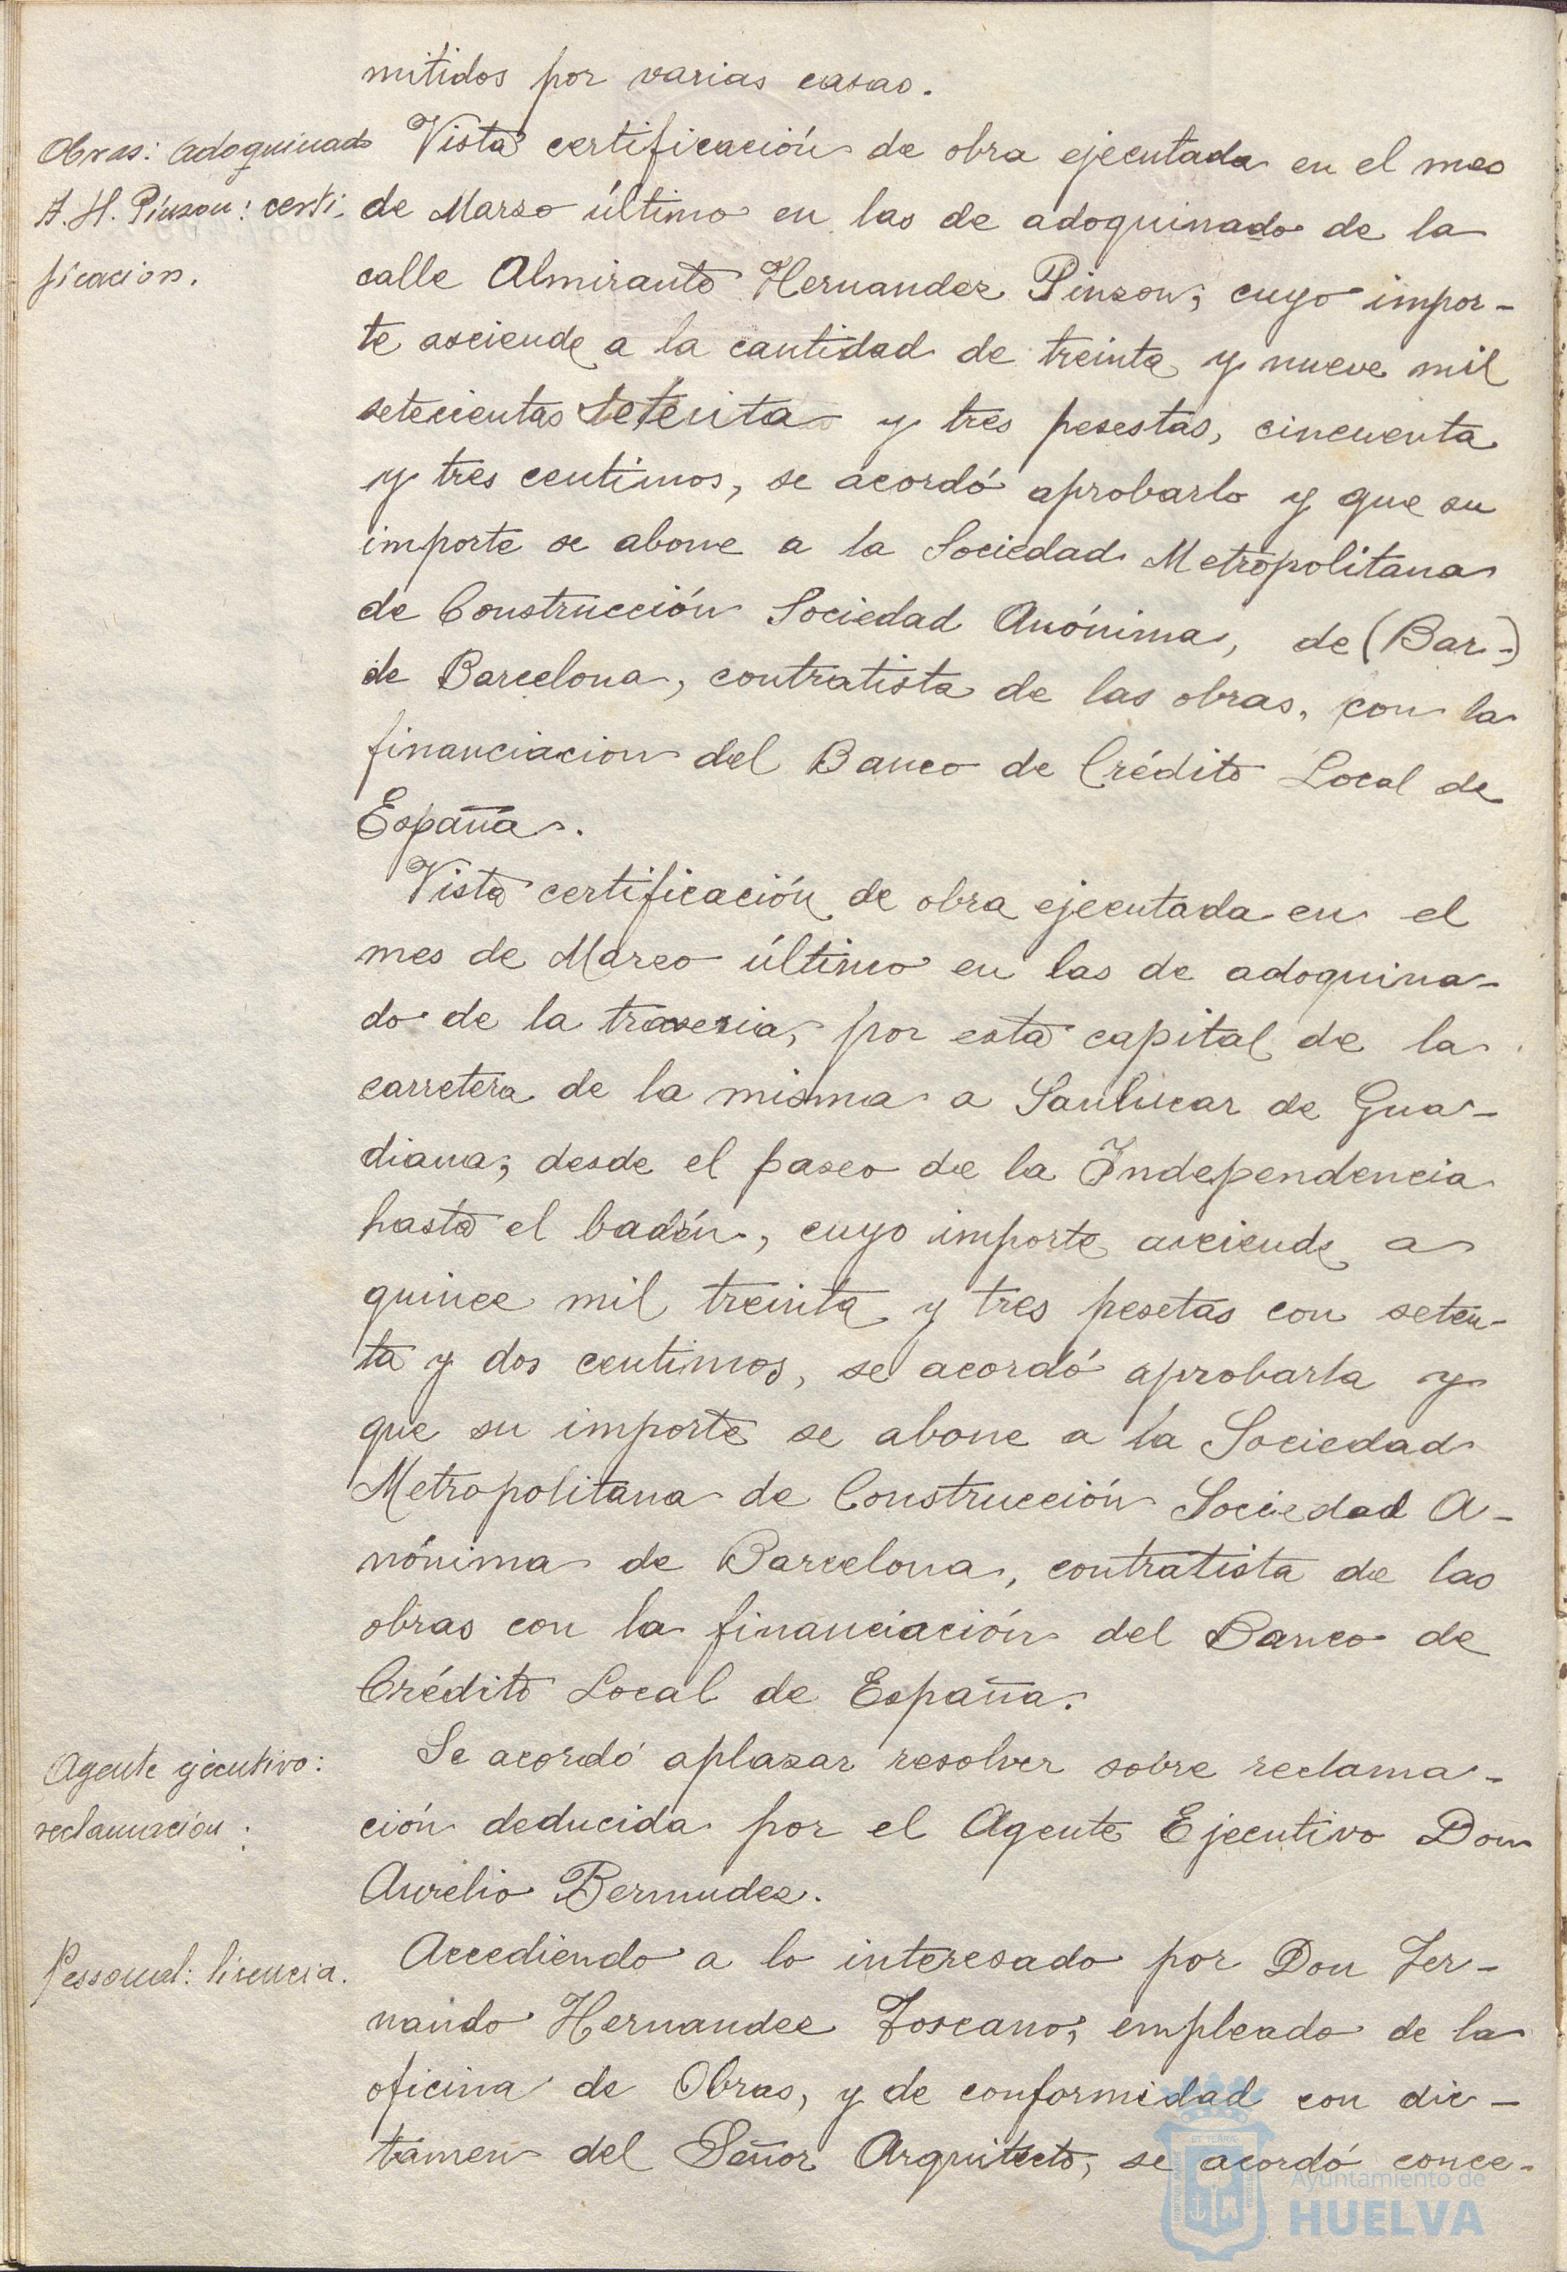 mitidos por varias casas.
Obras: adoquinado
A. H. Pinzon: certi-
ficacion.
Vista certificación de obra ejecutada en el mes
de Marzo último en las de adoquinado de la
calle Almirante Hernandez Pinzon, cuyo impor-
te asciende a la cantidad de treinta y nueve mil
setecientas setenta y tres pesestas, cincuenta
y tres centimos, se acordó aprobarlo y que su
importe se abone a la Sociedad Metropolitana
de Construcción Sociedad Anónima, de (Bar-)
de Barcelona, contratista de las obras, con la
financiacion del Banco de Crédito Local de
España.
Vista certificación de obra ejecutada en el
mes de Marzo último en las de adoquina-
do de la traversia, por esta capital de la
carretera de la misma a Sanlucar de Gua-
diana, desde el paseo de la Independencia
hasta el badén, cuyo importe asciende a
quince mil treinta y tres pesetas con seten-
ta y dos centimos, se acordó aprobarla y
que su importe se abone a la Sociedad
Metropolitana de Construcción Sociedad A-
nónima de Barcelona, contratista de las
obras con la financiación del Banco de
Crédito Local de España.
Agente ejecutivo:
reclamación:
Se acordó aplazar resolver sobre reclama-
ción deducida por el Agente Ejecutivo Don
Aurelio Bermudez.
Personal: licencia.
Accediendo a lo interesado por Don Fer-
nando Hernandez Toscano, empleado de la
oficina de Obras, y de conformidad con dic-
tamen del Señor Arquitecto, se acordó conce-
Ayuntamiento de
HUELVA